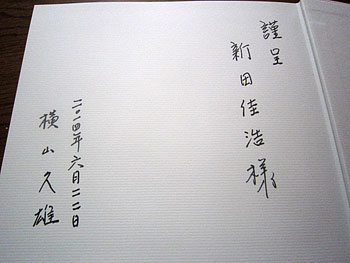 謹呈
新田佳浩様
二〇一四年六月二二日
横山久雄